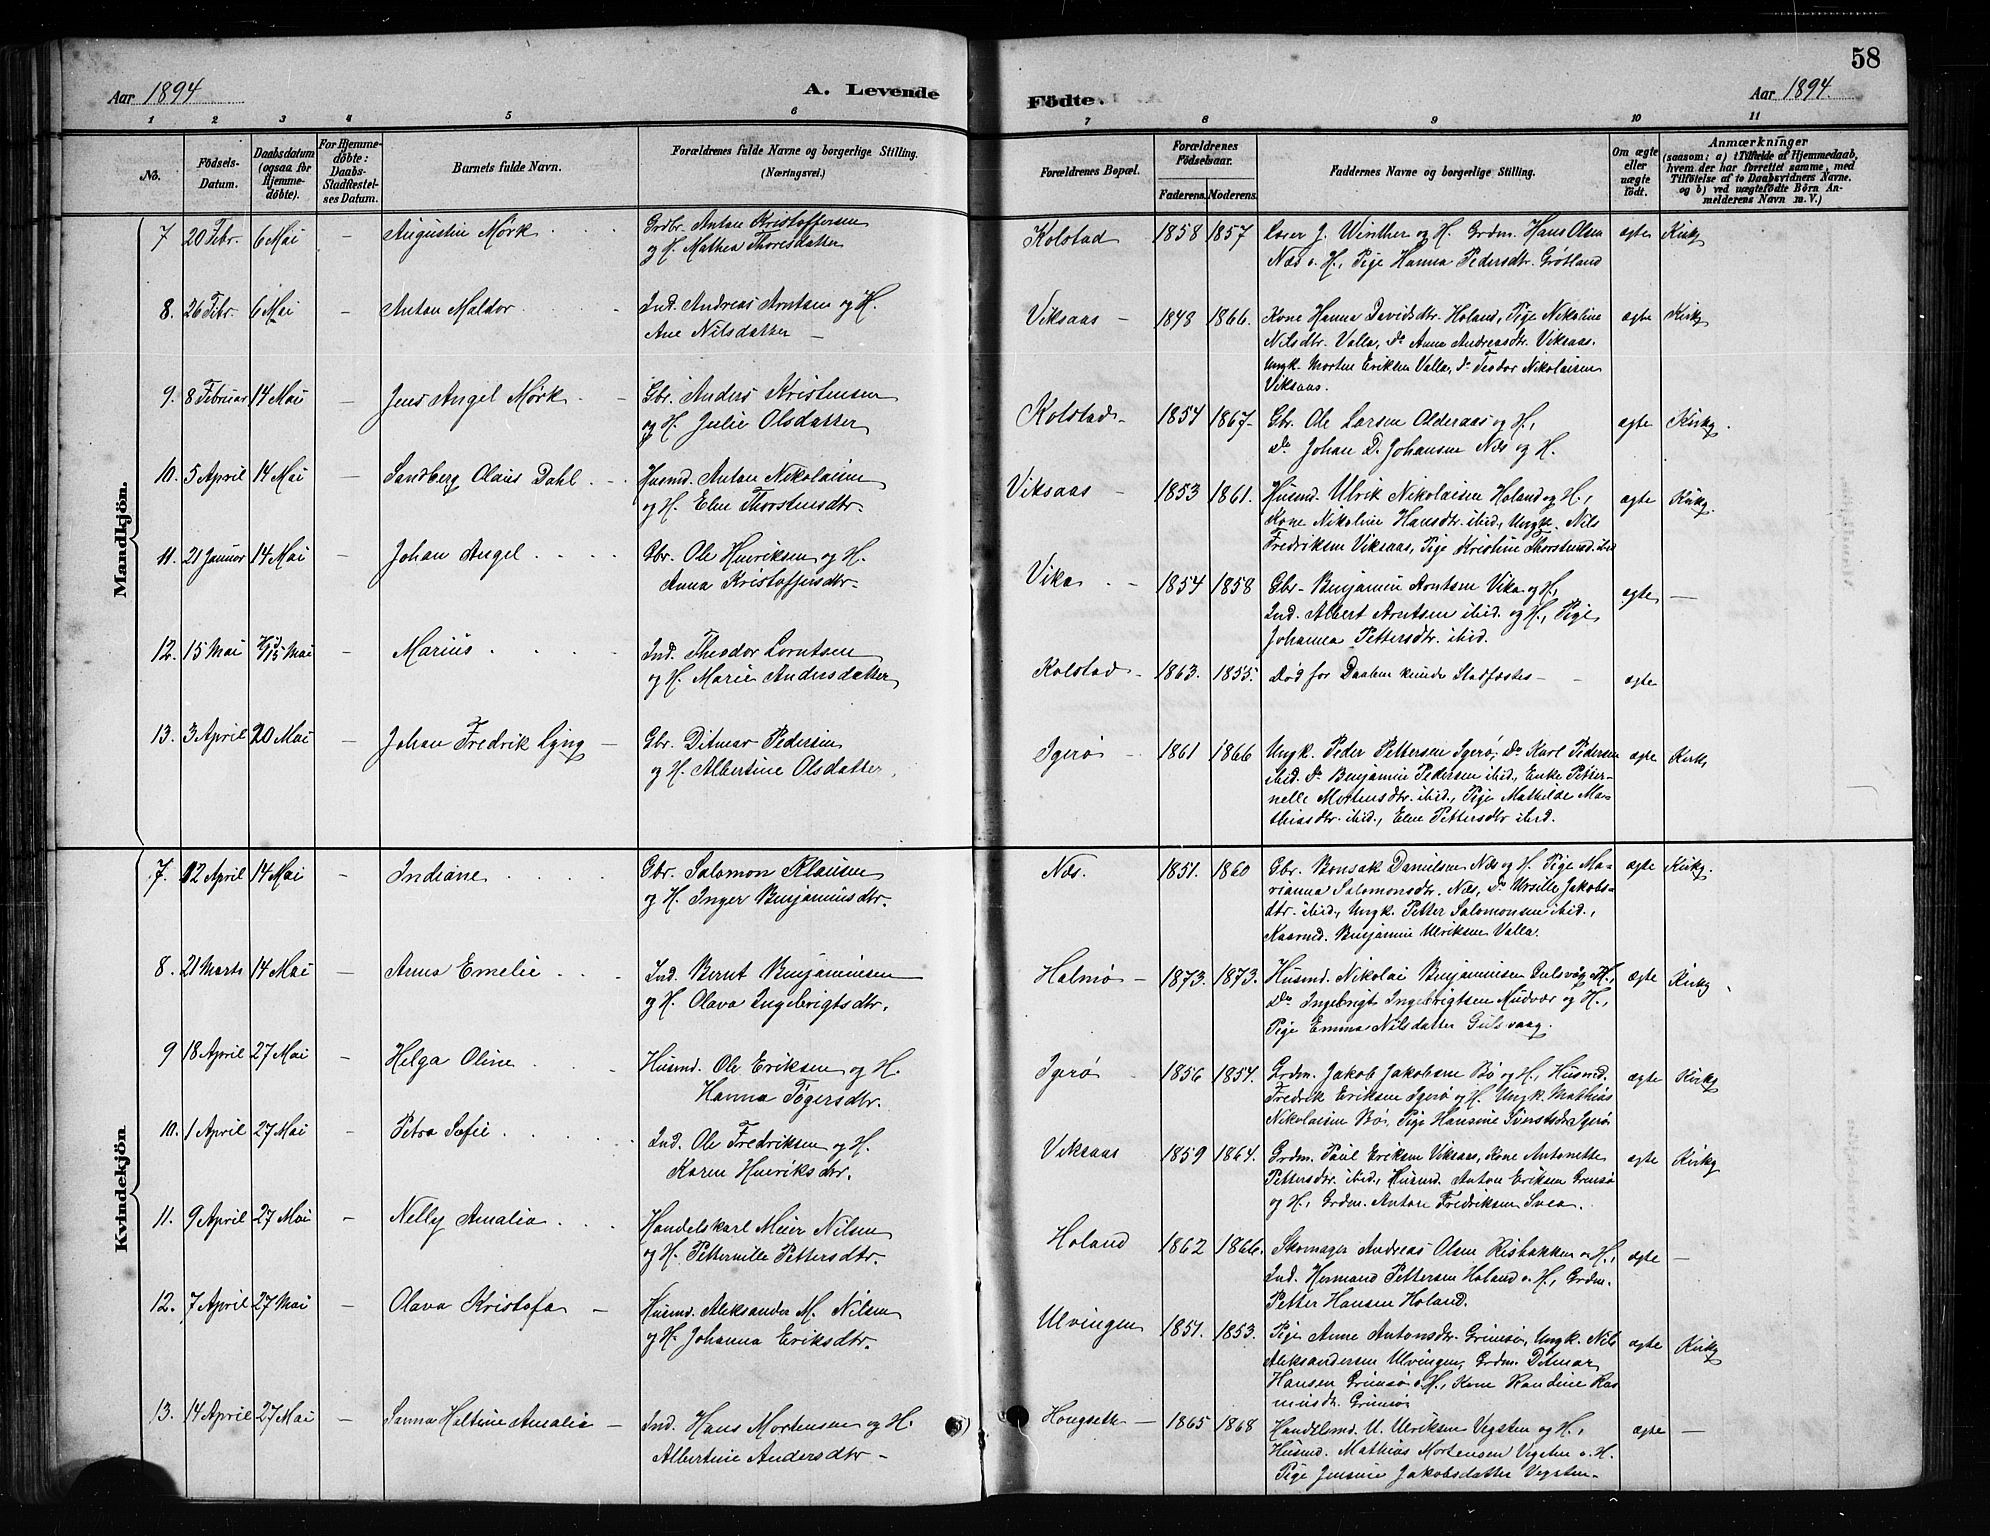 58
Aar 1894
A. Levende
Födte.
Aar 1894.
1 2 3 4 5 6 7 8 9 10 11
No.
Födsels-
Datum.
Daabsdatum
(ogsaa for
Hjemme-
döbte).
For Hjemme-
döbte:
Daabs-
Stadfæstel-
ses Datum.
Barnets fulde Navn.
Forældrenes fulde Navne og borgerlige Stilling.
(Næringsvei.)
Forældrenes Bopæl.
Forældrenes
Födselsaar.
Faderens. Moderens.
Faddernes Navne og borgerlige Stilling.
Om ægte
eller
uægte
födt.
Anmærkninger
(saasom: a) i Tilfælde af Hjemmedaab,
hvem der har forrettet samme, med
Tilföielse af to Daabsvidners Navne.
og b) ved uægtefödte Börn An-
melderens Navn m. V.)
Mandkjön.
7 20 Febr. 6 Mai – Augustin Mørk
Grdbr. Anton Kristoffersen
og H. Mathea Thoresdatter
Kolstad 1858 1857
Lærer J. Winther og H. Grdm. Hans Olsen
Næs o. H., Pige Hanna Pedersdtr. Grøtland
ægte Kirkg
8. 26 Febr. 6 Mai – Anton Maldor
Ind. Andreas Arntsen og H.
Ane Nilsdatter –
Viksaas – 1848 1866.
Kone Hanna Davidsdtr. Holand, Pige Nikoline
Nilsdtr. Valla, Do Anna Andreasdtr. Viksaas.
Ungk. Morten Eriksen Valla, Do Teodor Nikolaisen
Viksaas.
ægte Kirkg
9. 8 Februar 14 Mai – Jens Angel Mørk –
Gbr. Anders Kristensen
og H. Julie Olsdatter
Kolstad – 1854 1867–
Gbr. Ole Larsen Olderaas og H.,
Do Johan D. Johansen Næs og H.
ægte Kirkg.
10. 5 April 14 Mai – Sandberg Olaus Dahl
Husmd. Anton Nikolaisen
og H. Elen Thorstensdtr.
Viksaas – 1853 1861.
Husmd. Ulrik Nikolaisen Holand og H.,
Kone Nikoline Hansdtr. ibid., Ungk. Nils
Fredriksen Viksaas, Pige Kristine Thorstensd. ibid
ægte Kirkg.
11. 21 Januar 14 Mai – Johan Angel
Gbr. Ole Henriksen og H.
Anna Kristoffersdtr.
Vika – 1854 1858
Gbr. Benjamin Arntsen Vika og H.,
Ind. Albert Arntsen ibid. og H., Pige
Johanna Pettersdtr. ibid.
ægte –
12. 15 Mai 15 Mai – Marius
Ind. Theodor Lorntsen
og H. Marie Andersdatter
Kolstad – 1863. 1855.
Død før Daaben kunde Stadfæstes –
ægte
13. 3 April 20 Mai – Johan Fredrik Lyng –
Gbr. Ditmar Pedersen
og H. Albertine Olsdatter
Igerø – 1861 1866
Ungk. Peder Pettersen Igerø, Do Karl Pedersen
ibid. Do Benjamin Pedersen ibid., Enke Petter-
nelle Mortensdtr. ibid., Pige Mathilde Ma-
thiasdtr. ibid., Elen Pettersdtr ibid.
ægte Kirkg
Kvindekjön
7. 12 April 14 Mai – Indiane
Gbr. Salomon Klausen
og H. Inger Benjaminsdtr.
Næs. 1851. 1860
Gbr. Bonsak Danielsen Næs og H. Pige Ma-
rianna Salomonsdtr. Næs, Do Ursille Jakobs-
dtr. ibid, Ungk. Petter Salomonsen ibid.,
Kaarmd. Benjamin Ulriksen Valla.
ægte Kirkg.
8. 21 Marts 14 Mai – Anna Emelie
Ind. Bernt Benjaminsen
og H. Olava Ingebrigtsdtr.
Halmø – 1873. 1873.
Husmd. Nikolai Benjaminsen Gulsvåg o. H.,
Do Ingebrigt Ingebrigtsen Mudvær og H.,
Pige Emma Nilsdatter Gulsvaag.
ægte Kirkg
9 18 April 27 Mai – Helga Oline
Husmd. Ole Eriksen og H.
Hanna Tøgersdtr.
Igerø 1856 1854.
Grdm. Jakob Jakobsen Bø og H., Husmd.
Fredrik Eriksen Igerø og H. Ungk. Mathias
Nikolaisen Bø, Pige Hansine Sivertsdtr Igerø
ægte Kirkg
10. 1 April 27 Mai – Petra Sofie
Ind. Ole Fredriksen og H.
Karen Henriksdtr.
Viksaas 1859 1864.
Grdm. Paul Eriksen Viksaas, Kone Antonette
Pettersdtr. ibid., Husmd. Anton Eriksen Grimsø
og H., Grdm. Anton Fredriksen Svea.
ægte Kirkg
11. 9 April 27 Mai – Nelly Amalia
Handelskarl Meier Nilsen
og H. Petternille Pettersdtr.
Holand 1862 1866.
Skomager Andreas Olsen Risbakken o. H.,
Ind. Hermand Pettersen Holand o. H., Grdm.
Petter Hansen Holand.
ægte –
12. 7 April 27 Mai – Olava Kristofa –
Husmd. Aleksander M. Nilsen
og H. Johanna Eriksdtr.
Ulvingen 1851. 1853.
Pige Anne Antonsdtr. Grimsø, Ungk. Nils
Aleksandersen Ulvingen, Grdm. Ditmar
Hansen Grimsø o. H., Kone Randine Ras
musdtr. Grimsø
ægte Kirkg
13. 14 April 27 Mai – Sanna Haltine Amalia –
Ind. Hans Mortensen og H.
Albertine Andersdtr –
Hougseth – 1865 1868
Handelsmd. U. Ulriksen Vegsten og H.,
Husmd. Mathias Mortensen Vegsten o. H.
Pige Jensine Jakobsdatter Vegsten.
ægte –